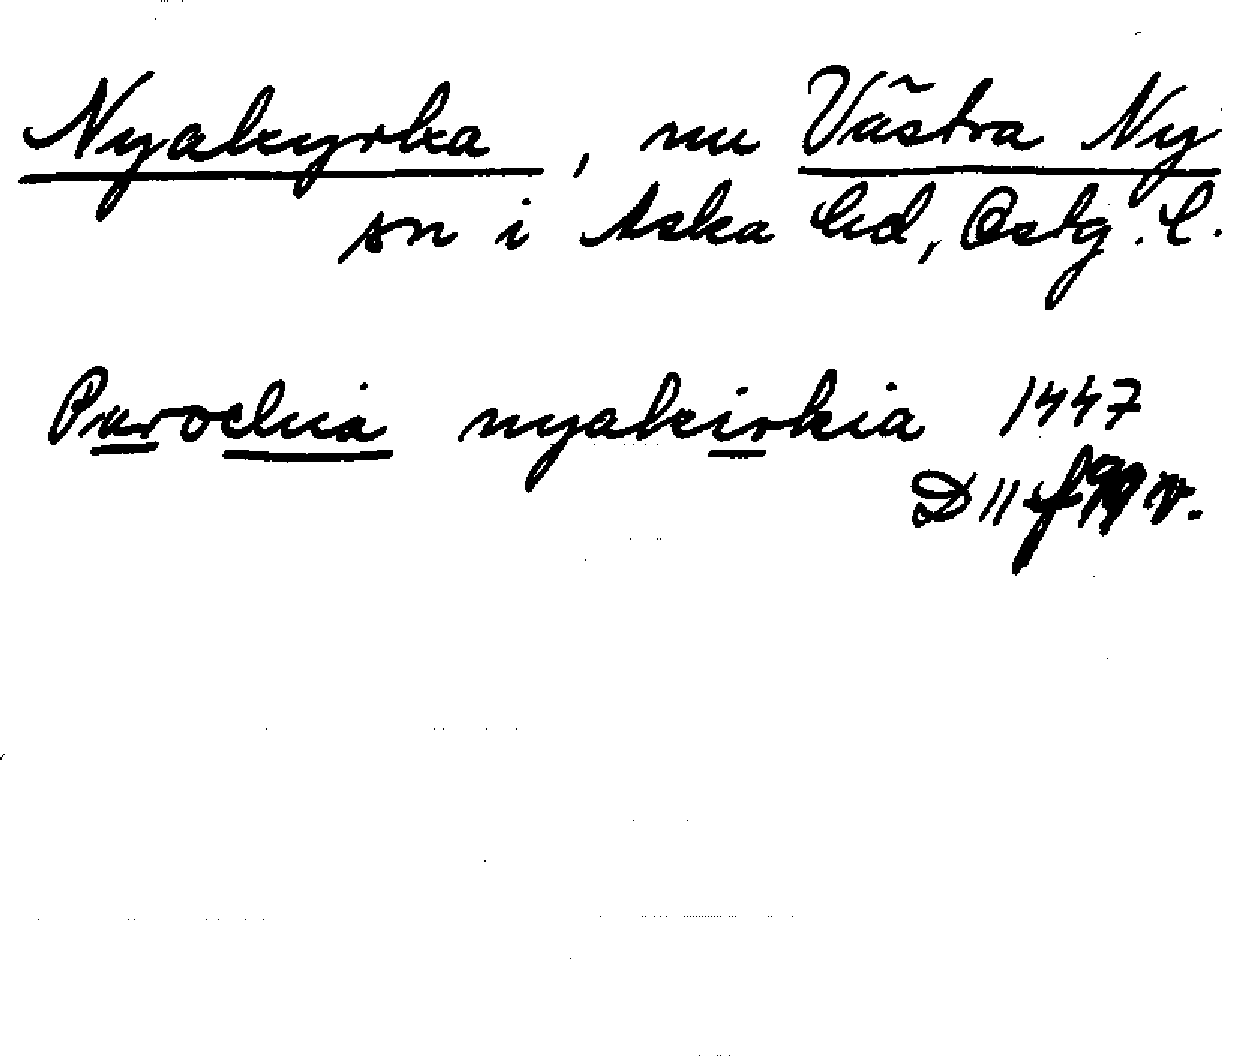 Nyakyrka, nu Västra Ny
sn i Aska hd, Östg. l.
Parochia nyakirkia 1447
D 11 f 99 v.